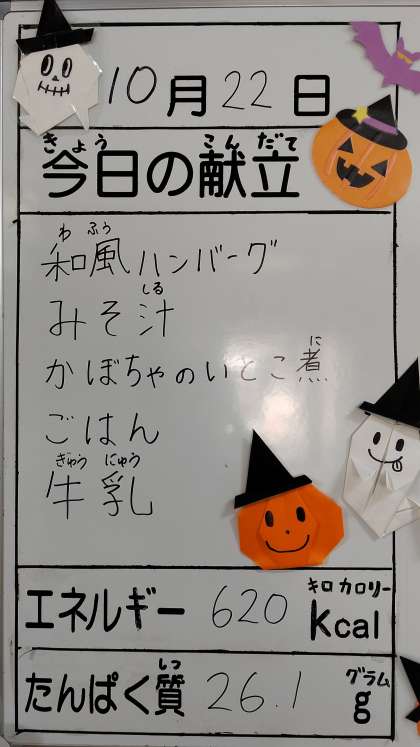 10月22日
きょう こんだて
今日の献立
わ ふう
和風ハンバーグ
しる
みそ汁
に
かぼちゃのいとこ煮
ごはん
ぎゅう にゅう
牛乳
キロカロリー
エネルギー 620 kcal
しつ グラム
たんぱく質 26.1 g